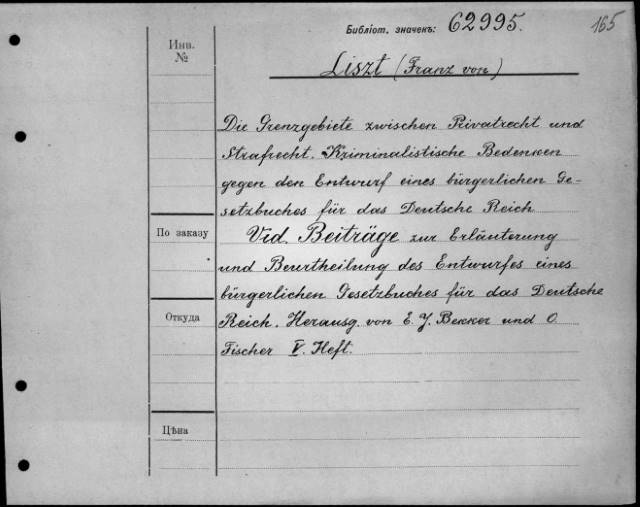 Библіот. значекъ: 62995.
165
Инв. №
Liszt (Franz von)
Die Grenzgebiete zwischen Privatrecht und
Strafrecht. Kriminalistische Bedenken
gegen den Entwurf eines bürgerlichen Ge-
setzbuches für das Deutsche Reich
По заказу
Vid. Beiträge zur Erläuterung
und Beurtheilung des Entwurfes eines
bürgerlichen Gesetzbuches für das Deutsche
Откуда
Reich. Herausg. von E. J. Bekker und O
Fischer V. Heft.
Цѣна